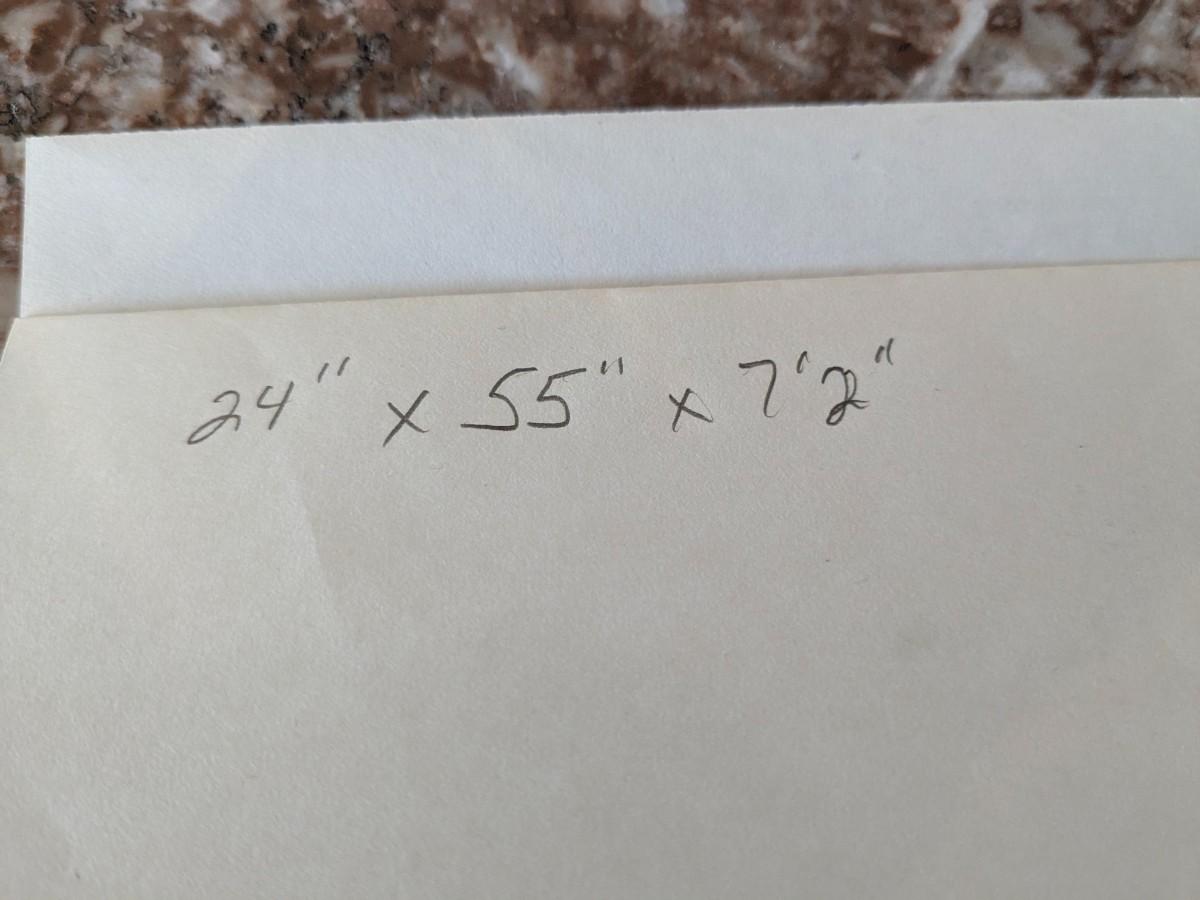 24" x 55" x 7'2"